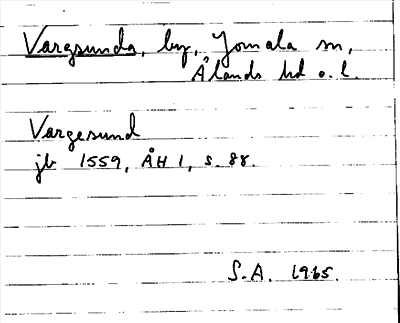 Vargsunda, by, Jomala sn,
Ålands hd o. l.
Vargesund
jb 1559, ÅH 1, s. 88.
S.A. 1965.